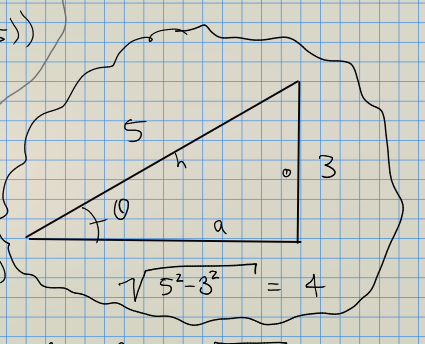 ))
5
h
o
3
θ
a
√5²-3² = 4